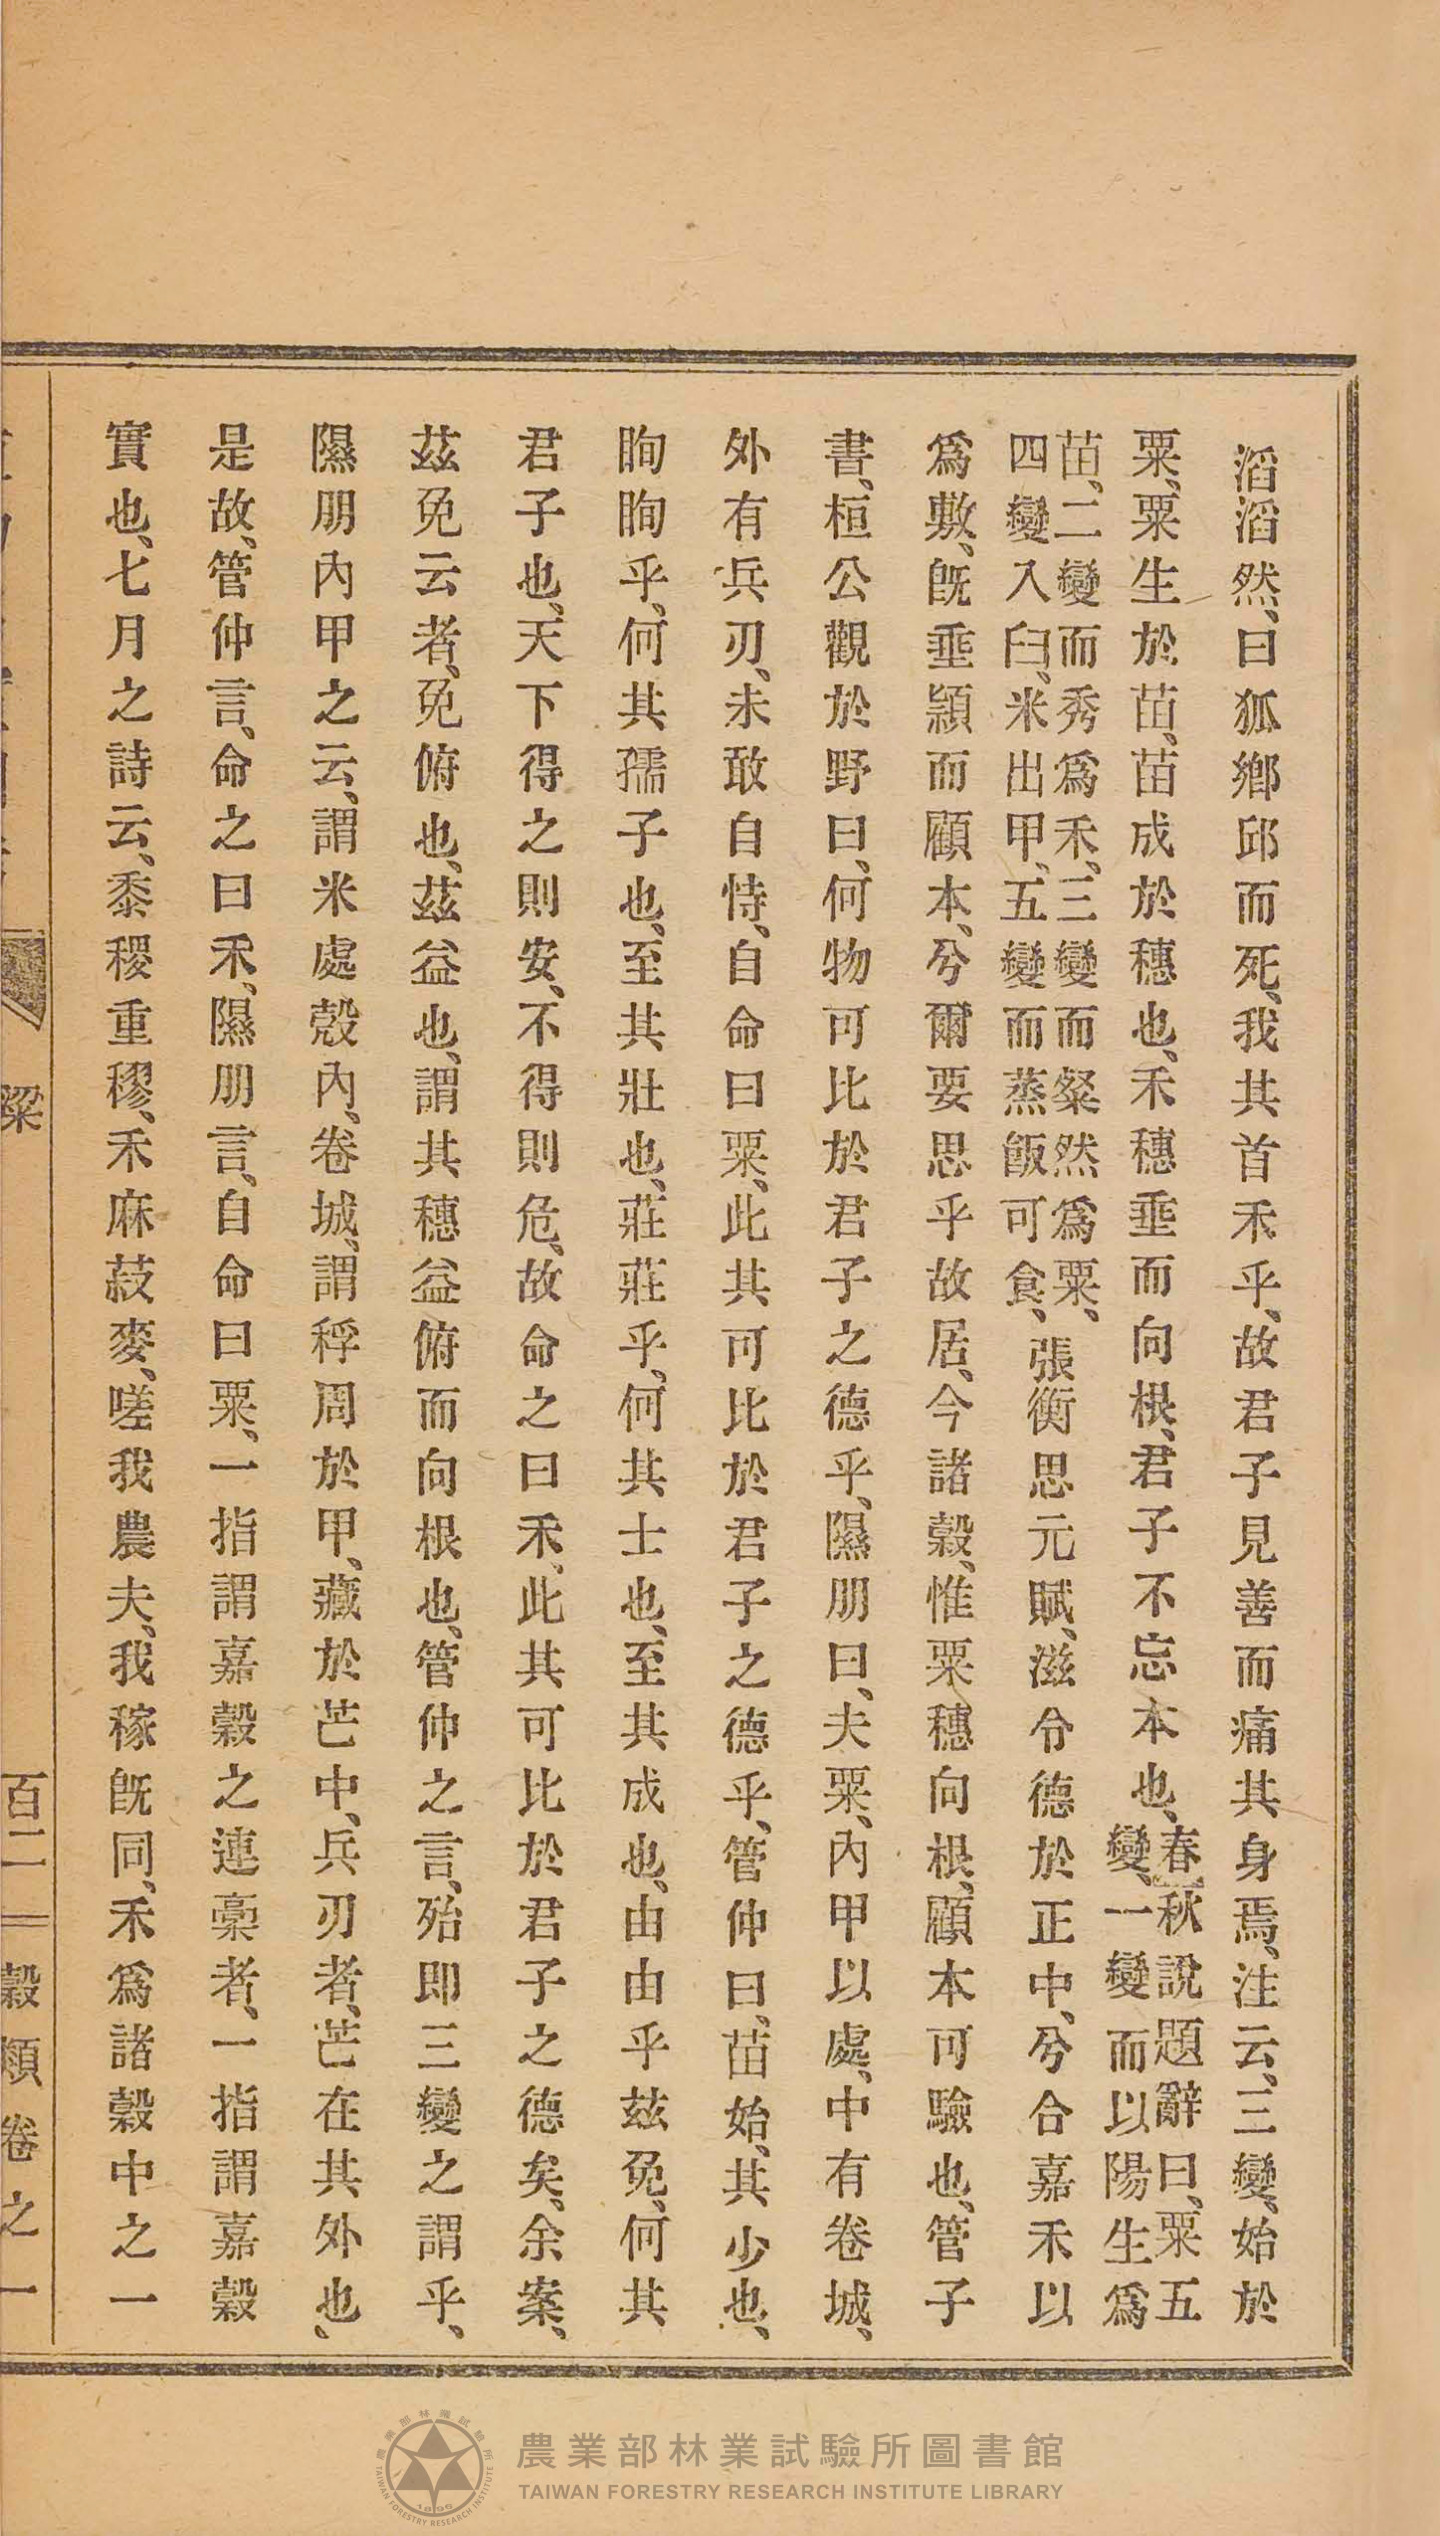 滔滔然、曰狐鄉邱而死、我其首禾乎、故君子見善而痛其身焉、注云、三變、始於
粟、粟生於苗、苗成於穗也、禾穗垂而向根、君子不忘本也、
春秋說題辭曰、粟五
變、一變而以陽生爲
苗、二變而秀爲禾、三變而粲然爲粟、
四變入臼、米出甲、五變而蒸飯可食、
張衡思元賦、滋令德於正中、兮合嘉禾以
爲敷、旣垂頴而顧本、兮爾要思乎故居、今諸穀、惟粟穗向根、顧本可驗也、管子
書、桓公觀於野曰、何物可比於君子之德乎、隰朋曰、夫粟、內甲以處、中有卷城、
外有兵刃、未敢自恃、自命曰粟、此其可比於君子之德乎、管仲曰、苗始、其少也、
眴眴乎、何其孺子也、至其壯也、莊莊乎、何其士也、至其成也、由由乎兹免、何其
君子也、天下得之則安、不得則危、故命之曰禾、此其可比於君子之德矣、余案、
茲免云者、免俯也、茲益也、謂其穗益俯而向根也、管仲之言、殆即三變之謂乎、
隰朋內甲之云、謂米處殼內、卷城、謂稃周於甲、藏於芒中、兵刃者、芒在其外也、
是故、管仲言、命之曰禾、隰朋言、自命曰粟、一指謂嘉穀之連稾者、一指謂嘉穀
實也、七月之詩云、黍稷重穋、禾麻菽麥、嗟我農夫、我稼旣同、禾爲諸穀中之一
粱
百二
穀類卷之一
農業部林業試驗所圖書館
TAIWAN FORESTRY RESEARCH INSTITUTE LIBRARY
農業部林業試驗所
TAIWAN FORESTRY RESEARCH INSTITUTE
1896